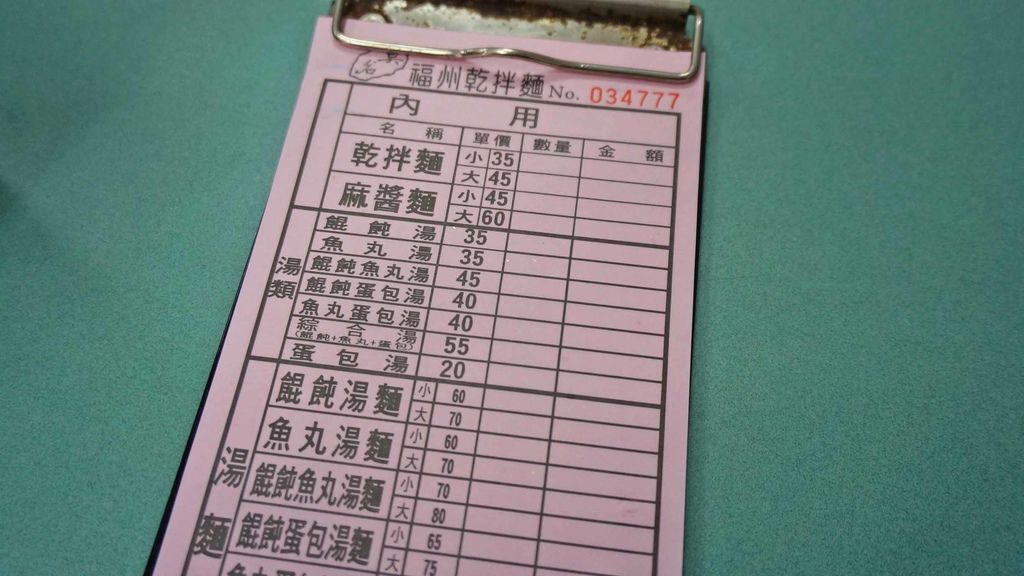 福州乾拌麵 No. 034777
內 用
名 稱 單 價 數 量 金 額
乾拌麵 小 35
大 45
麻醬麵 小 45
大 60
湯類
餛 飩 湯 35
魚 丸 湯 35
餛飩魚丸湯 45
餛飩蛋包湯 40
魚丸蛋包湯 40
綜 合 湯 55
(餛飩+魚丸+蛋包)
蛋 包 湯 20
湯麵
餛飩湯麵 小 60
大 70
魚丸湯麵 小 60
大 70
餛飩魚丸湯麵 小 70
大 80
餛飩蛋包湯麵 小 65
大 75